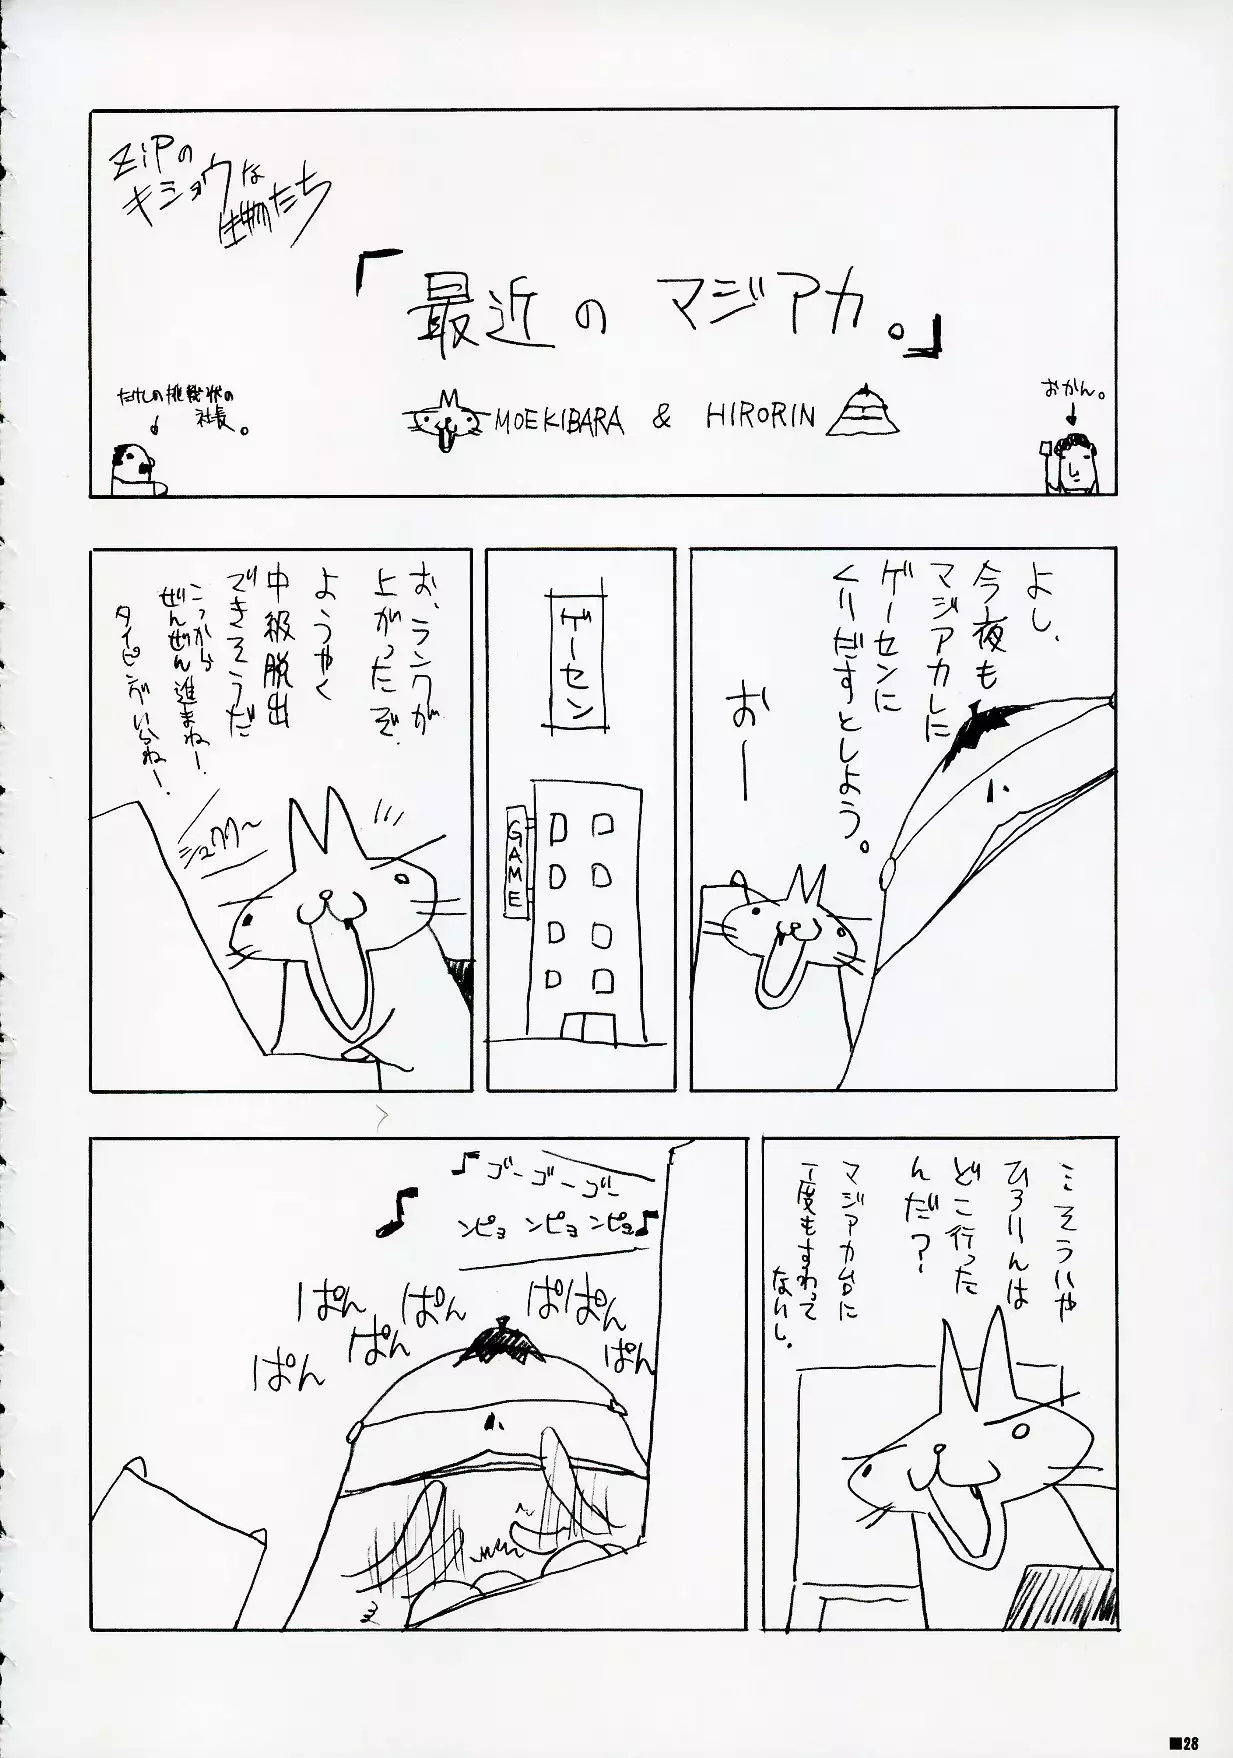 ZiPの
キショウな
生物たち
「最近のマジアカ。」
たけしの挑戦状の
社長。
おかん。
MOEKIBARA & HIRORIN
よし、
今夜も
マジアカしに
ゲーセンに
くりだすとしよう。
おー
ゲーセン
GAME
お、ランクが
上がったぞ
ようやく
中級脱出
できそうだ
こっから
ぜんぜん進まねー
タイピングいらねー
ミそういや
ひろりんは
どこ行った
んだ?
マジアカ台に
1度もすわって
ないし。
♪ゴーゴーゴー
ンピョ ンピョ ンピョ♪
♪
ぱぱん
ぱん
ぱん
ぱん
ぱん
ぱん
■28